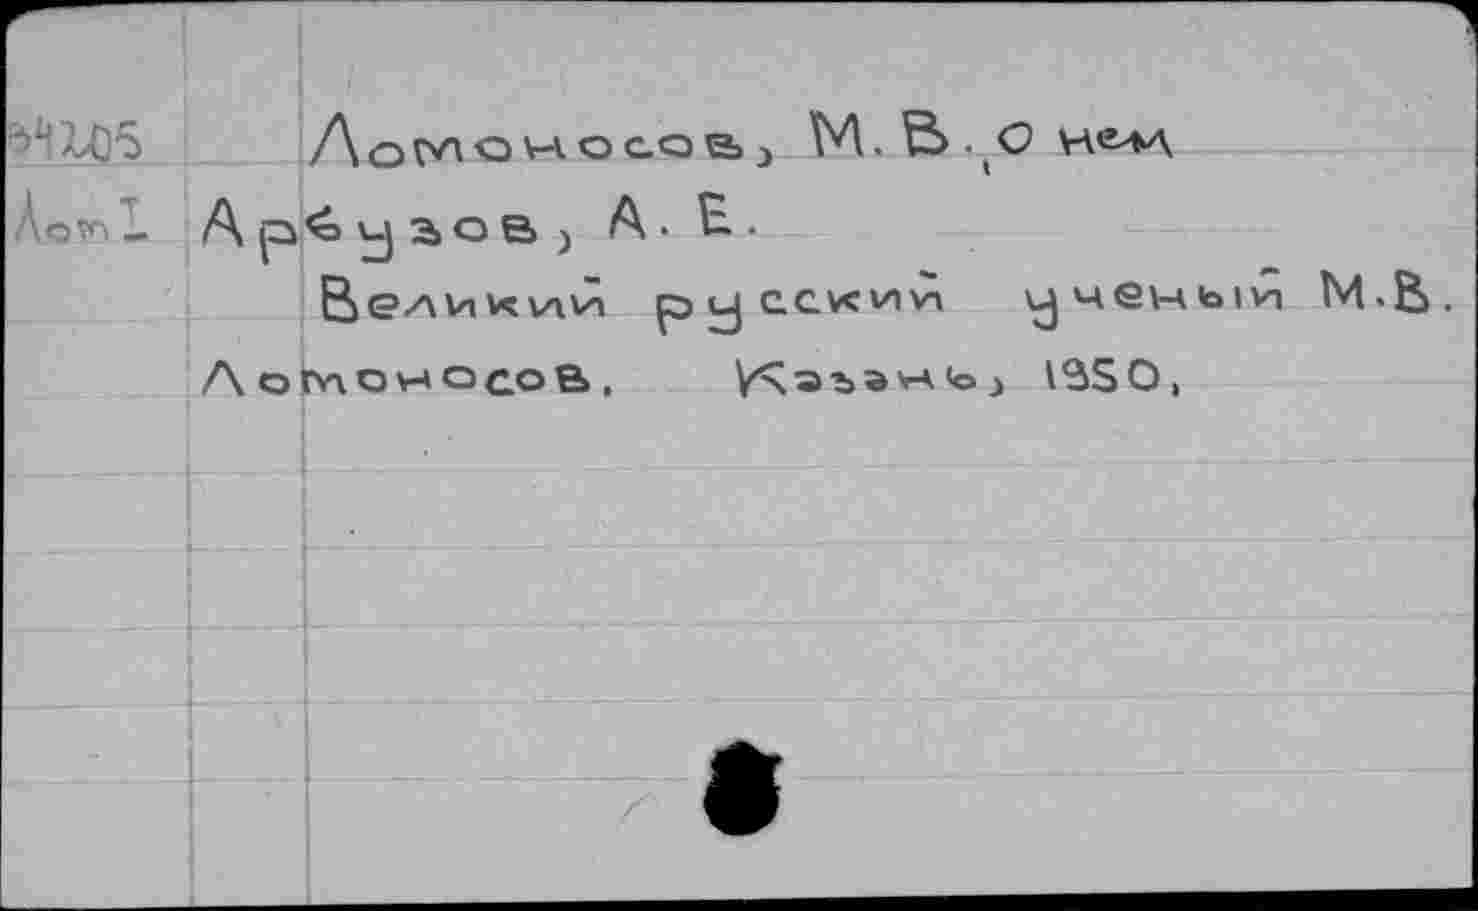 Ломоносов, М. В., О нем
Лом I Арбузов, А. Е.
Великий русский ученый М.В.
Ломоносов. Казань, 1950,